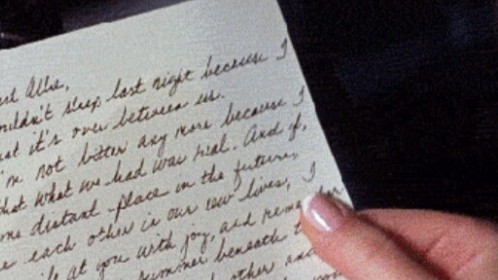 Allie,
couldn't sleep last night because I
that it's over between us.
I'm not bitter any more because I
that what we had was real. And if,
some distant place in the future,
see each other in our new lives, I
smile at you with joy, and remember
summer beneath
other and